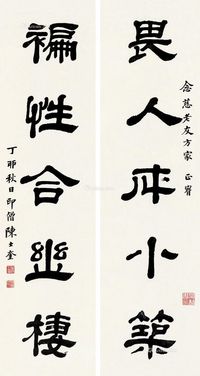 念慈老友方家 正
畏人成小築
褊性合幽棲
丁卯秋日印僧陳士奎